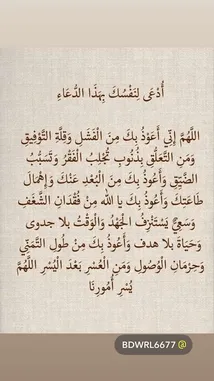 أُدْعَى لِنَفْسُكَ بِهَذَا الدُّعَاءِ
اللَّهُمَّ إِنِّي أَعَوْذُ بِكَ مِنَ الْفَشَلِ وَقِلَّةِ التَّوْفِيقِ
وَمَنِ التَّعَلُّقِ بِذُنُوبٍ تُجْلِبُ الْفَقْرُ وَتَسَبُّبُ
الضَّيِّقِ وَأَعُوذُ بِكَ مِنَ الْبُعْدِ عَنْكَ وَإِهْمَالِ
طَاعَتِكَ وَأَعُوذُ بِكَ يا اللَّه مِنْ فُقْدَانِ الشَّغَفِ
وَسَعِيٍّ يَسْتَنْزِفُ الْجَهْدَ وَالْوَقْتَ بلا جدوى
وَحَيَاةَ بلا هدف وَأَعُوذُ بِكَ مِنْ طُولِ التَّمَنِّي
وَحِرْمَانِ الْوُصُولِ وَمَنِ الْعُسْرِ بَعْدَ الْيُسْرِ اللَّهُمَّ
يُسْرِ أُمُورِنَا
BDWRL6677 @